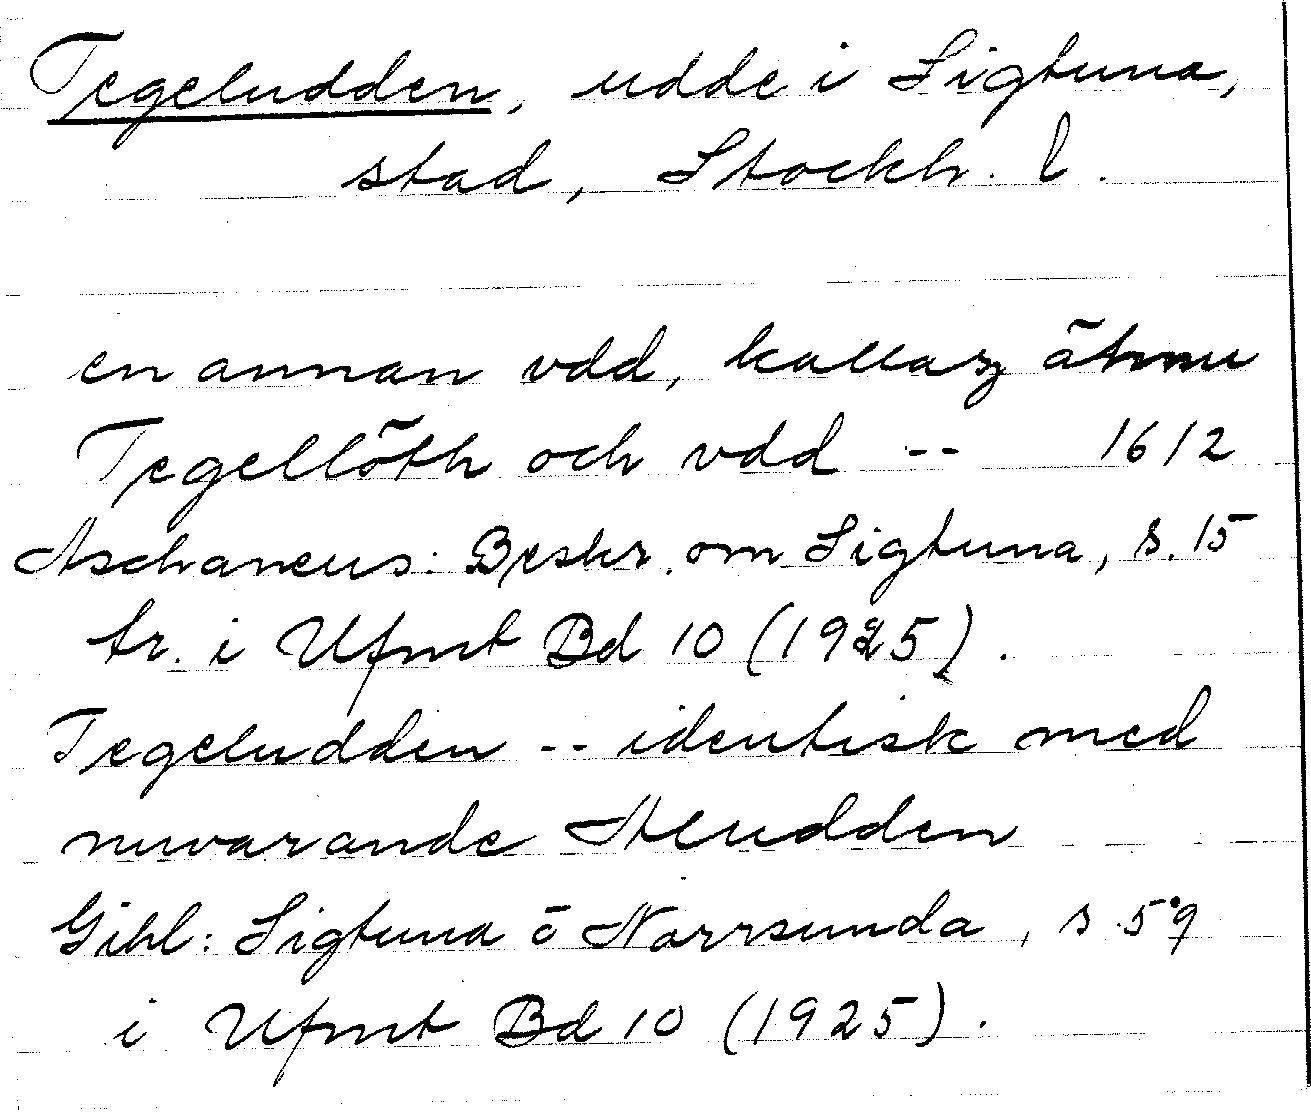 Tegeludden, udde i Sigtuna,
stad, Stockh. l.
en annan vdd, kallaz
Tegellöth och vdd -- 1612
Aschaneus: Beskr. om Sigtuna, s. 15
tr. i Ufmt Bd 10 (1925).
Tegeludden -- identisk med
nuvarande Aludden
Gihl: Sigtuna o Norrsunda, s 59
i Ufmt Bd 10 (1925).